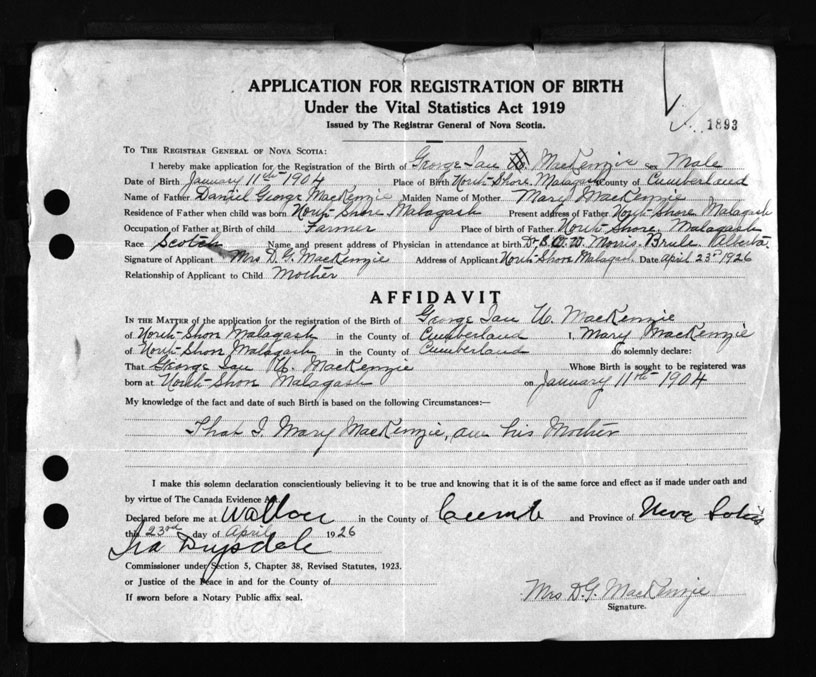 APPLICATION FOR REGISTRATION OF BIRTH
Under the Vital Statistics Act 1919
Issued by The Registrar General of Nova Scotia.
1893
To The Registrar General of Nova Scotia:
I hereby make application for the Registration of the Birth of George Ian W. MacKenzie Sex Male
Date of Birth January 11th 1904 Place of Birth North Shore Malagash County of Cumberland
Name of Father Daniel George MacKenzie Maiden Name of Mother Mary MacKenzie
Residence of Father when child was born North-Shore Malagash Present address of Father North-Shore Malagash
Occupation of Father at Birth of child Farmer Place of birth of Father North Shore, Malagash
Race Scotch Name and present address of Physician in attendance at birth Dr. W. Morris. Brule Alberta.
Signature of Applicant Mrs D. G. MacKenzie Address of Applicant North Shore Malagash. Date April 23rd 1926
Relationship of Applicant to Child Mother
AFFIDAVIT
In the Matter of the application for the registration of the Birth of George Ian W. MacKenzie
of North-Shore Malagash in the County of Cumberland I, Mary MacKenzie
of North-Shore Malagash in the County of Cumberland do solemnly declare:
That George Ian W. MacKenzie Whose Birth is sought to be registered was
born at North-Shore Malagash on January 11th 1904
My knowledge of the fact and date of such Birth is based on the following Circumstances:—
That I, Mary MacKenzie, am his Mother
I make this solemn declaration conscientiously believing it to be true and knowing that it is of the same force and effect as if made under oath and
by virtue of The Canada Evidence Act.
Declared before me at Wallace in the County of Cumb and Province of Nova Scotia
this 23rd day of April 1926
Ira Drysdale
Commissioner under Section 5, Chapter 38, Revised Statutes, 1923.
or Justice of the Peace in and for the County of
If sworn before a Notary Public affix seal.
Mrs D.G. MacKenzie
Signature.